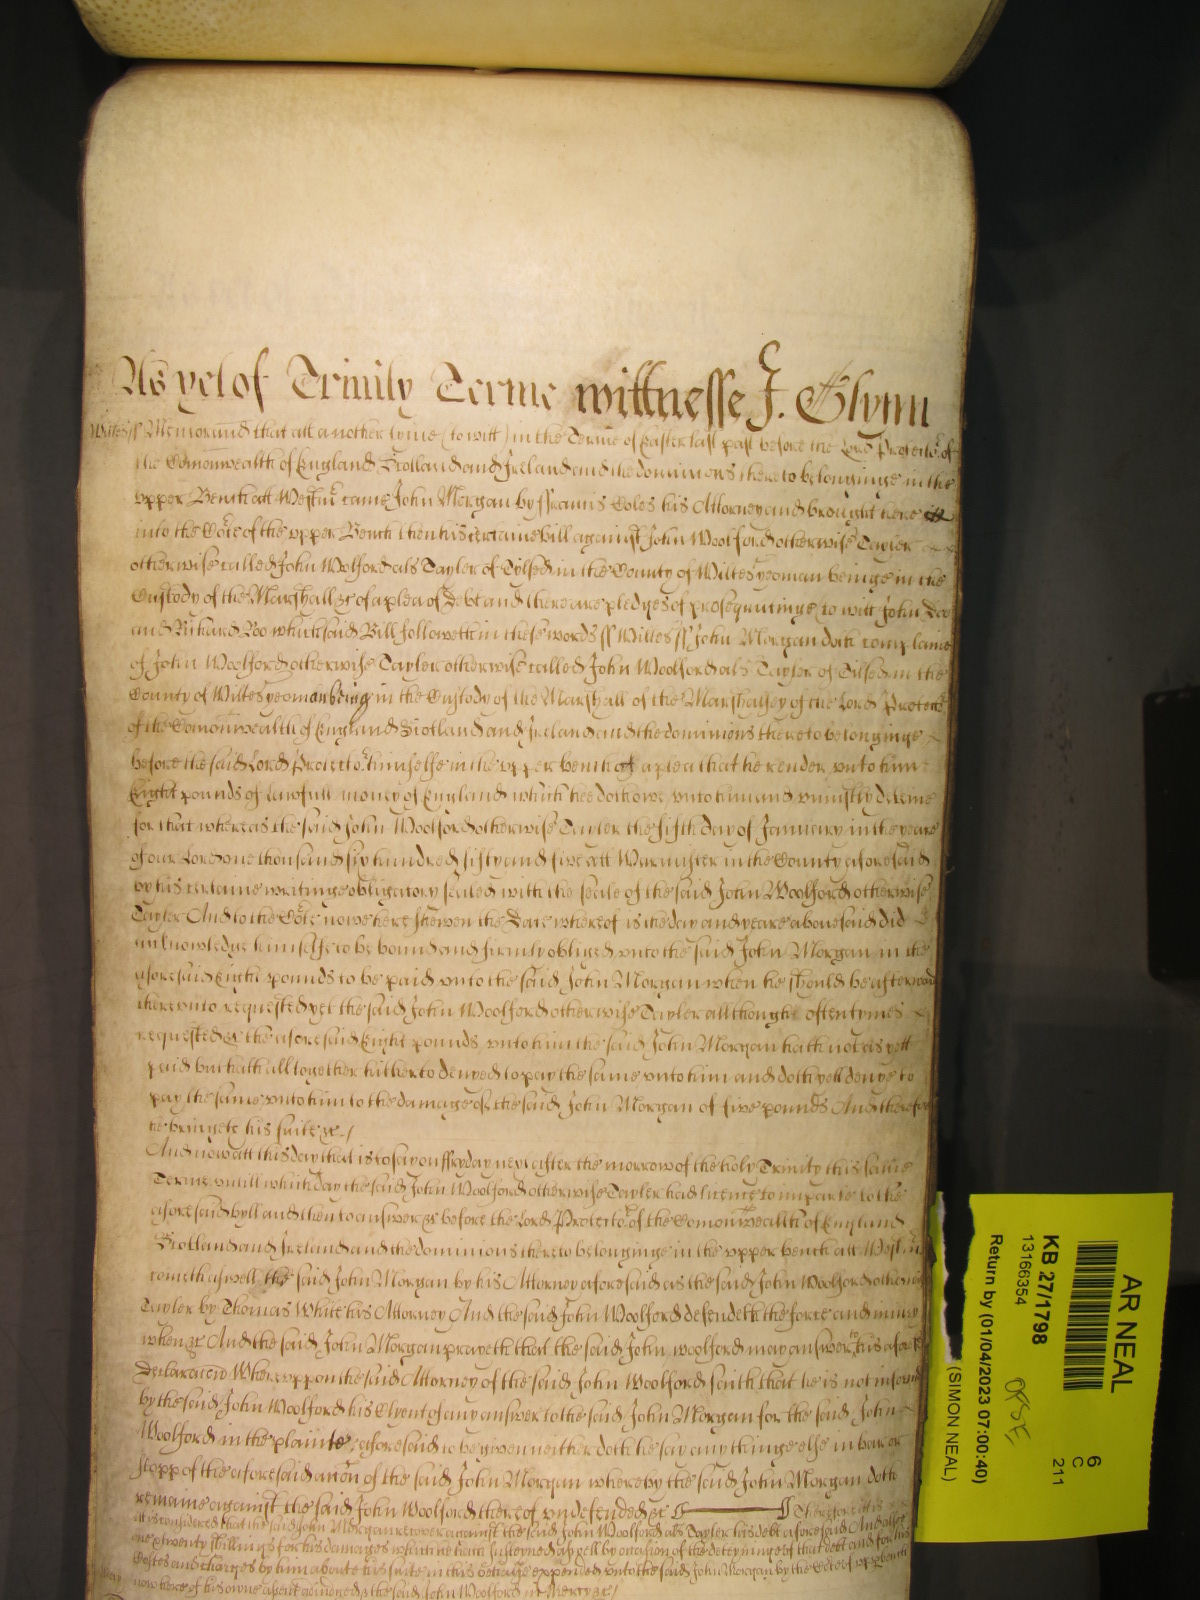 As yet of Trinity Terme wittnesse J. Glynn
Wiltes ss Memorand that att another tyme (to witt) in the Terme of Easter last past before the Lord Protector of
the Comonwealth of England Scotland and Ireland and the dominions thereto belonginge in the
upper Bench att Westmr came John Morgan by ffrancis Coles his Attorney and brought here
into the Cort of the upper Bench then his certaine bill against John Woolford otherwise Tayler
otherwise called John Wolford als Tayler of Tylsed in the County of Wiltes yeoman beinge in the
Custody of the Marshall &c of a plea of Debt and there are pledges of prosequutinge to witt John Doe
and Richard Roo which said Bill followeth in these words ss Wiltes ss John Morgan doth complaine
of John Woolford otherwise Tayler otherwise called John Woolford als Tayler of Tilsed in the
County of Wiltes yeoman being in the Custody of the Marshall of the Marshalsey of the Lord Protector
of the Comonwealth of England Scotland and Ireland and the dominions thereto belonginge
before the said Lord Protector himselfe in the upper bench of a plea that he render unto him
Eight pounds of lawfull money of England which hee doth owe unto him and uniustly deteine
for that whereas the said John Woolford otherwise Tayler the fifth day of January in the yeare
of our Lord one thousand six hundred fifty and five att Warmister in the County aforesaid
by his certaine writinge obligatory sealed with the seale of the said John Woolford otherwise
Tayler And to the Cort nowe here shewen the Date whereof is the day and yeare abovesaid did
acknowledge himselfe to be bound and firmly obliged unto the said John Morgan in the
aforesaid Eight pounds to be paid unto the said John Morgan when he should be afterward
thereunto requested yet the said John Woolford otherwise Tayler allthough oftentymes
requested &c the aforesaid Eight pounds unto him the said John Morgan hath not as yett
paid but hath alltogether hitherto denyed to pay the same unto him and doth yett denye to
pay the same unto him to the damage of the said John Morgan of five pounds And therefore
he bringeth his suite &c /
And now att this day that is to say on ffryday next after the morrow of the holy Trinity this same
Terme untill which day the said John Woolford otherwise Tayler had licence to imparle to the
aforesaid byll and then to answer &c before the Lord Protector of the Comonwealth of England
Scotland and Ireland and the dominions thereto belonginge in the upper bench att Westmr
cometh aswell the said John Morgan by his Attorney aforesaid as the said John Woolford otherwise
Tayler by Thomas White his Attorney And the said John Woolford defendeth the force and iniury
when &c And the said John Morgan prayeth that the said John woolford may answer to his aforesaid
Declaracion Whereuppon the said Attorney of the said John Woolford saith that he is not informed
by the said John Woolford his Clyent of any answer to the said John Morgan for the said John
Woolford in the plainte aforesaid to be given neither doth he say any thinge else in bar or
stopp of the aforesaid accon of the said John Morgan whereby the said John Morgan doth
remaine against the said John Woolford thereof undefended &c Therefore it is
it is considered that the said John Morgan recover against the said John Woolford als Tayler his debt aforesaid And alsoe
one & twenty shillings for his damages which he hath susteyned aswell by occasion of the deteyninge of that debt and for his
Costes and charges by him aboute his suite in this behalfe expended unto the said John Morgan by the Corte of upp bench
now here of his owne assent adiudged & the said John Woolford in Mercy &c /
AR NEAL
KB 27/1798
13166354
Return by (01/04/2023 07:00:40)
(SIMON NEAL)
6
C
211